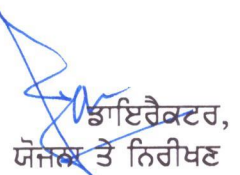 ਡਾਇਰੈਕਟਰ,
ਯੋਜਨਾ ਤੇ ਨਿਰੀਖਣ